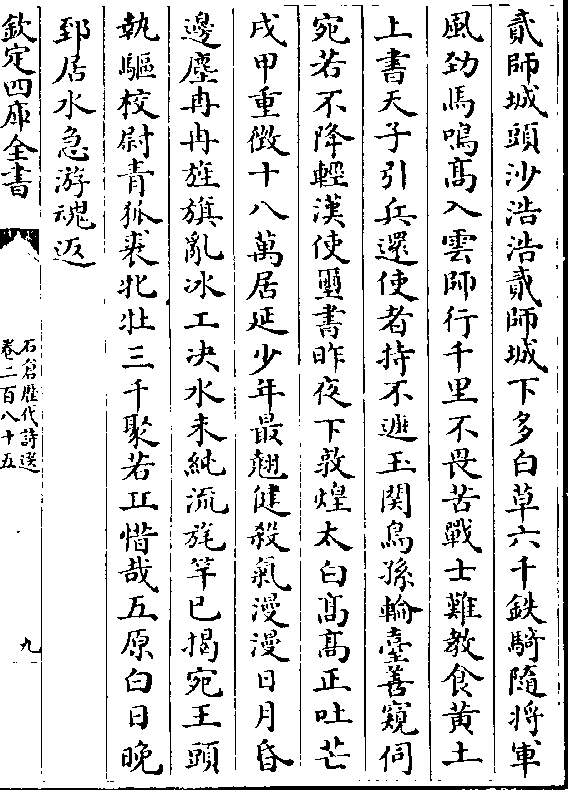 貳師城頭沙浩浩貳師城下多白草六千鉄騎隨將軍
風勁馬鳴髙入雲師行千里不畏苦戰士難教食黄土
上書天子引兵還使者持不遮玉関烏孫輪臺善窺伺
宛若不降輕漢使璽書昨夜下敦煌太白髙髙正吐芒
戌甲重徴十八萬居延少年最翹健殺氣漫漫日月昏
邊塵冉冉旌旗亂冰工决水未絶流旄竿已揭宛王頭
執驅校尉青狐裘牝牡三千聚若丘惜哉五原白日晚
郅居水急游魂返
欽定四庫全書
石倉歴代詩選
卷二百八十五
九